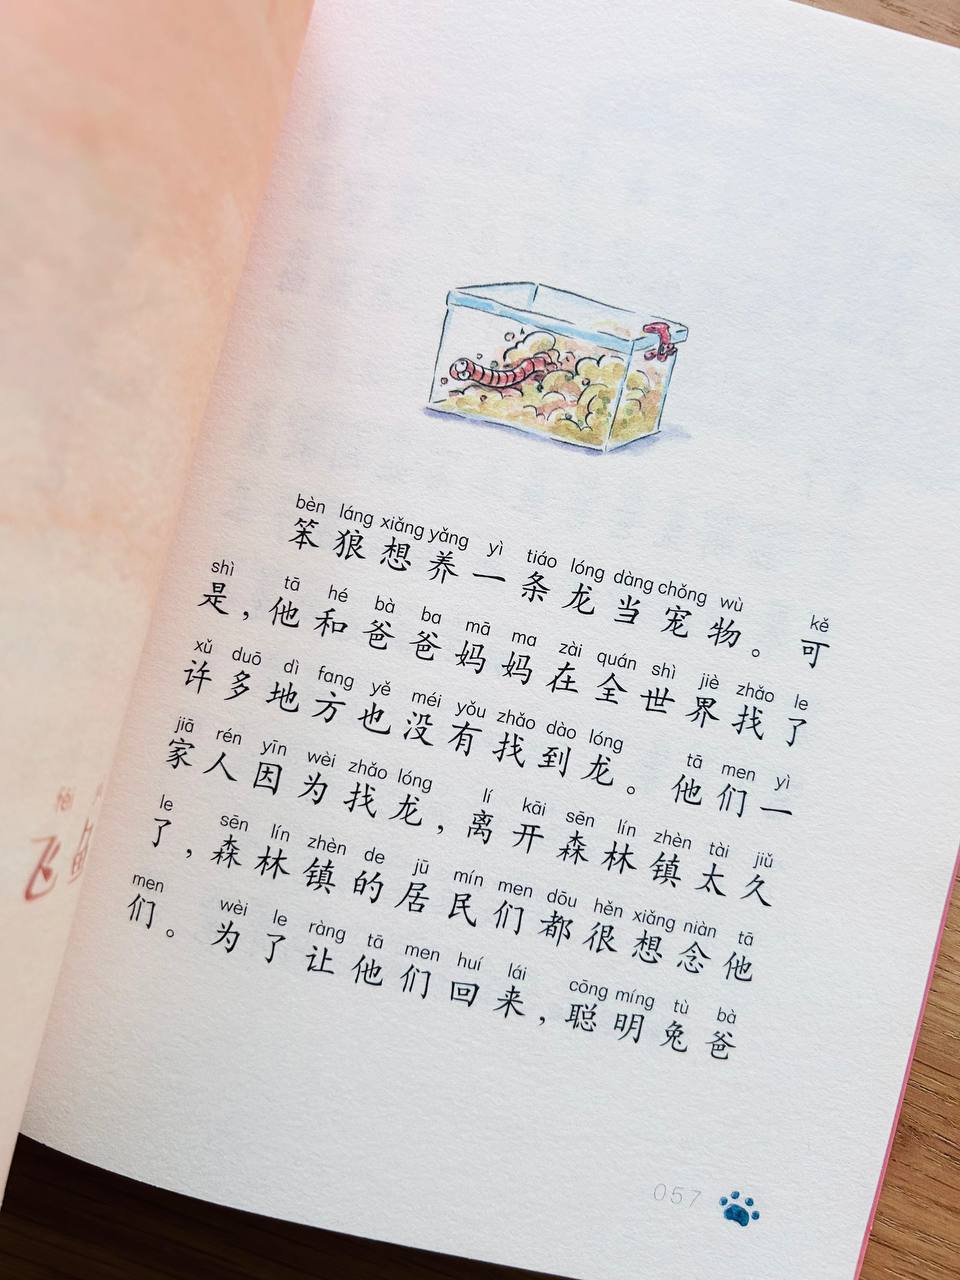 bèn láng xiǎng yǎng yì tiáo lóng dàng chǒng wù kě
笨狼想养一条龙当宠物。可
shì tā hé bà ba mā ma zài quán shì jiè zhǎo le
是，他和爸爸妈妈在全世界找了
xǔ duō dì fang yě méi yǒu zhǎo dào lóng tā men yì
许多地方也没有找到龙。他们一
jiā rén yīn wèi zhǎo lóng lí kāi sēn lín zhèn tài jiǔ
家人因为找龙，离开森林镇太久
le sēn lín zhèn de jū mín men dōu hěn xiǎng niàn tā
了，森林镇的居民们都很想念他
men wèi le ràng tā men huí lái cōng míng tù bà
们。为了让他们回来，聪明兔爸
057
fēi
飞鱼